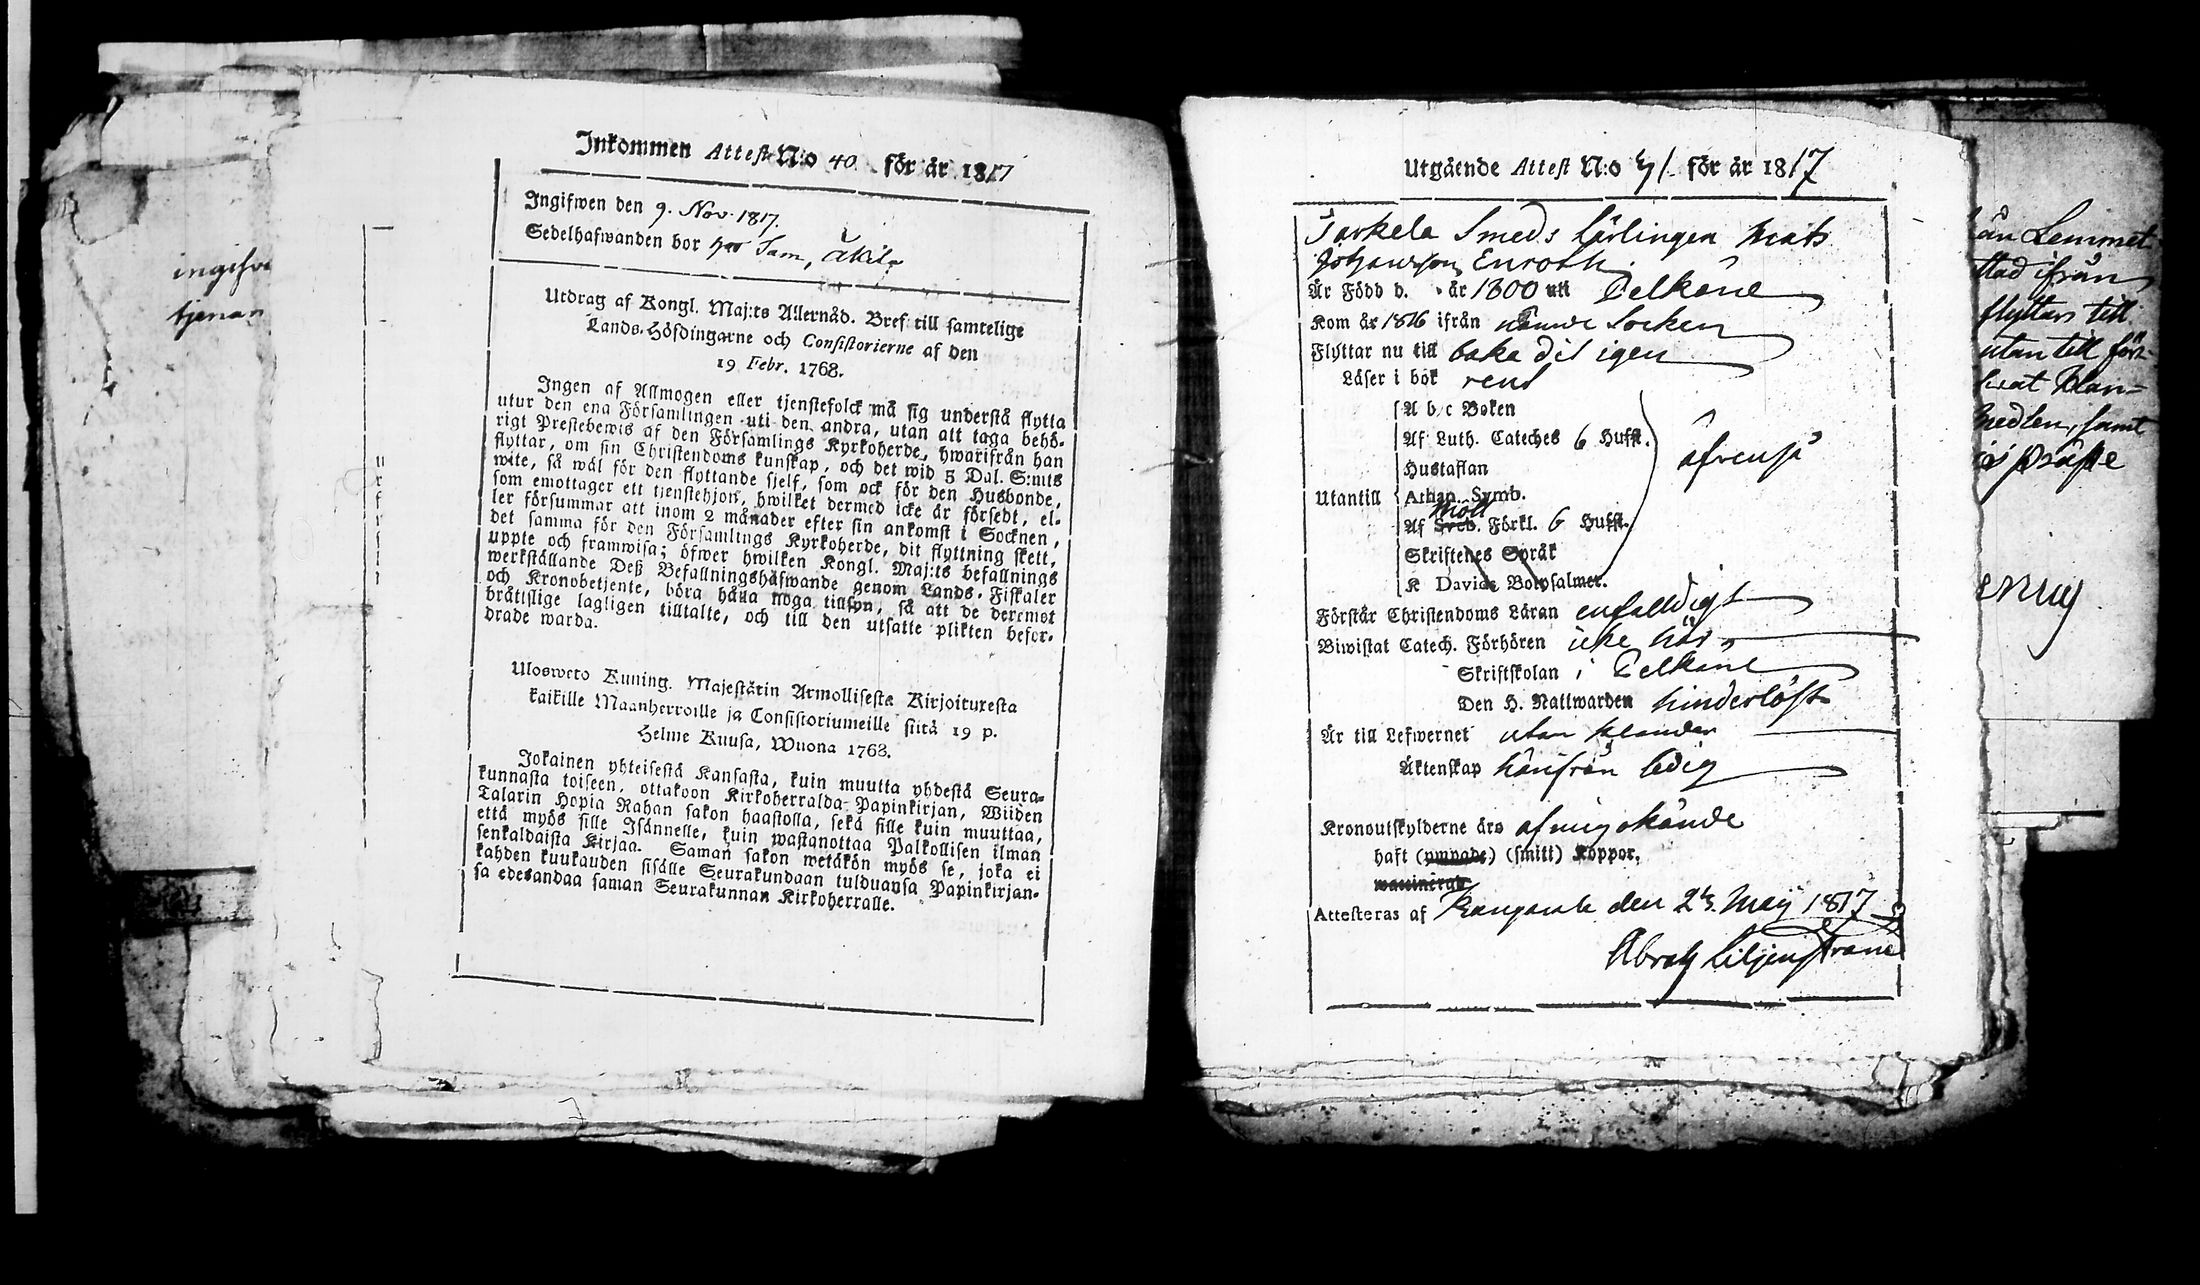 ingifve
tjenan
Inkommen Attest N:o 40. för år 1817
Ingifwen den 9. Nov. 1817.
Sedelhafwanden bor hos Sam,
Utdrag af Kongl. Maj:ts Allernåd. Bref till samtelige
Lands-Höfdingarne och Consistorierne af den
19 Febr. 1768.
Ingen af Allmogen eller tjenstefolck må sig understå flytta
utur den ena Församlingen uti den andra, utan att taga behö-
rigt Prestebewis af den Församlings Kyrkoherde, hwarifrån han
flyttar, om sin Christendoms kunskap, och det wid 5 Dal. S:mts
wite, så wäl för den flyttande sjelf, som ock för den Husbonde,
som emottager ett tjenstehjon, hwilket dermed icke är försedt, el-
ler försummar att inom 2 månader efter sin ankomst i Socknen,
det samma för den Församlings Kyrkoherde, dit flyttning skett,
uppte och framwisa; öfwer hwilken Kongl. Maj:ts befallnings
werkställande Deß Befallningshafwande genom Lands-Fiskaler
och Kronobetjente, böra hålla noga tillsyn, så att de deremot
bråttslige lagligen tilltalte, och till den utsatte plikten befor-
drade warda.
Uloswето Kuning. Majestätin Armollisesta Kirjoituxesta
kaikille Maanherroille ja Consistoriumeille siitä 19 p.
Helme Kuusa, Wuona 1768.
Jokainen yhteisestä Kansasta, kuin muutta yhdestä Seura-
kunnasta toiseen, ottakoon Kirkoherralda Papinkirjan, Wiiden
Talarin Hopia Rahan sakon haastolla, sekä sille kuin muuttaa,
että myös sille Isännelle, kuin wastanottaa Palkollisen ilman
senkaldaista Kirjaa. Saman sakon wetäkön myös se, joka ei
kahden kuukauden sisälle Seurakundaan tulduansa Papinkirjan-
sa edesandaa saman Seurakunnan Kirkoherralle.
Utgående Attest N:o 41 för år 1817
Sarkela Smeds Lärlingen Mats
Johansson Enroth
Är Född d. år 1800 uti Pelkäne
Kom år 1816 ifrån nämde Socken
Flyttar nu till baka dit igen
Läser i bok rent
A b c Boken
Af Luth. Cateches 6 Hufst.
Hustaflan
åfvenså
Utantill
Athan. Symb.
Möll
Af Sveb. Förkl. 6 Hufst.
Skriftenes Språk
K Davids Botpsalmer.
Förstår Christendoms Läran enfaldigt
Biwistat Catech. Förhören icke här
Skriftskolan i Pelkäne
Den H. Nattwarden hinderlöst
Är till Lefwernet utan klander
Äktenskap härifrån ledig
Kronoutskylderne äro af mig okände
haft (ympade) (smitt) Koppor.
Attesteras af Kangasala den 23. Maij 1817
Abrah Liljenstrand
från Lemmet
flyttad ifrån
flyttar till
utan till för-
medlen, samt